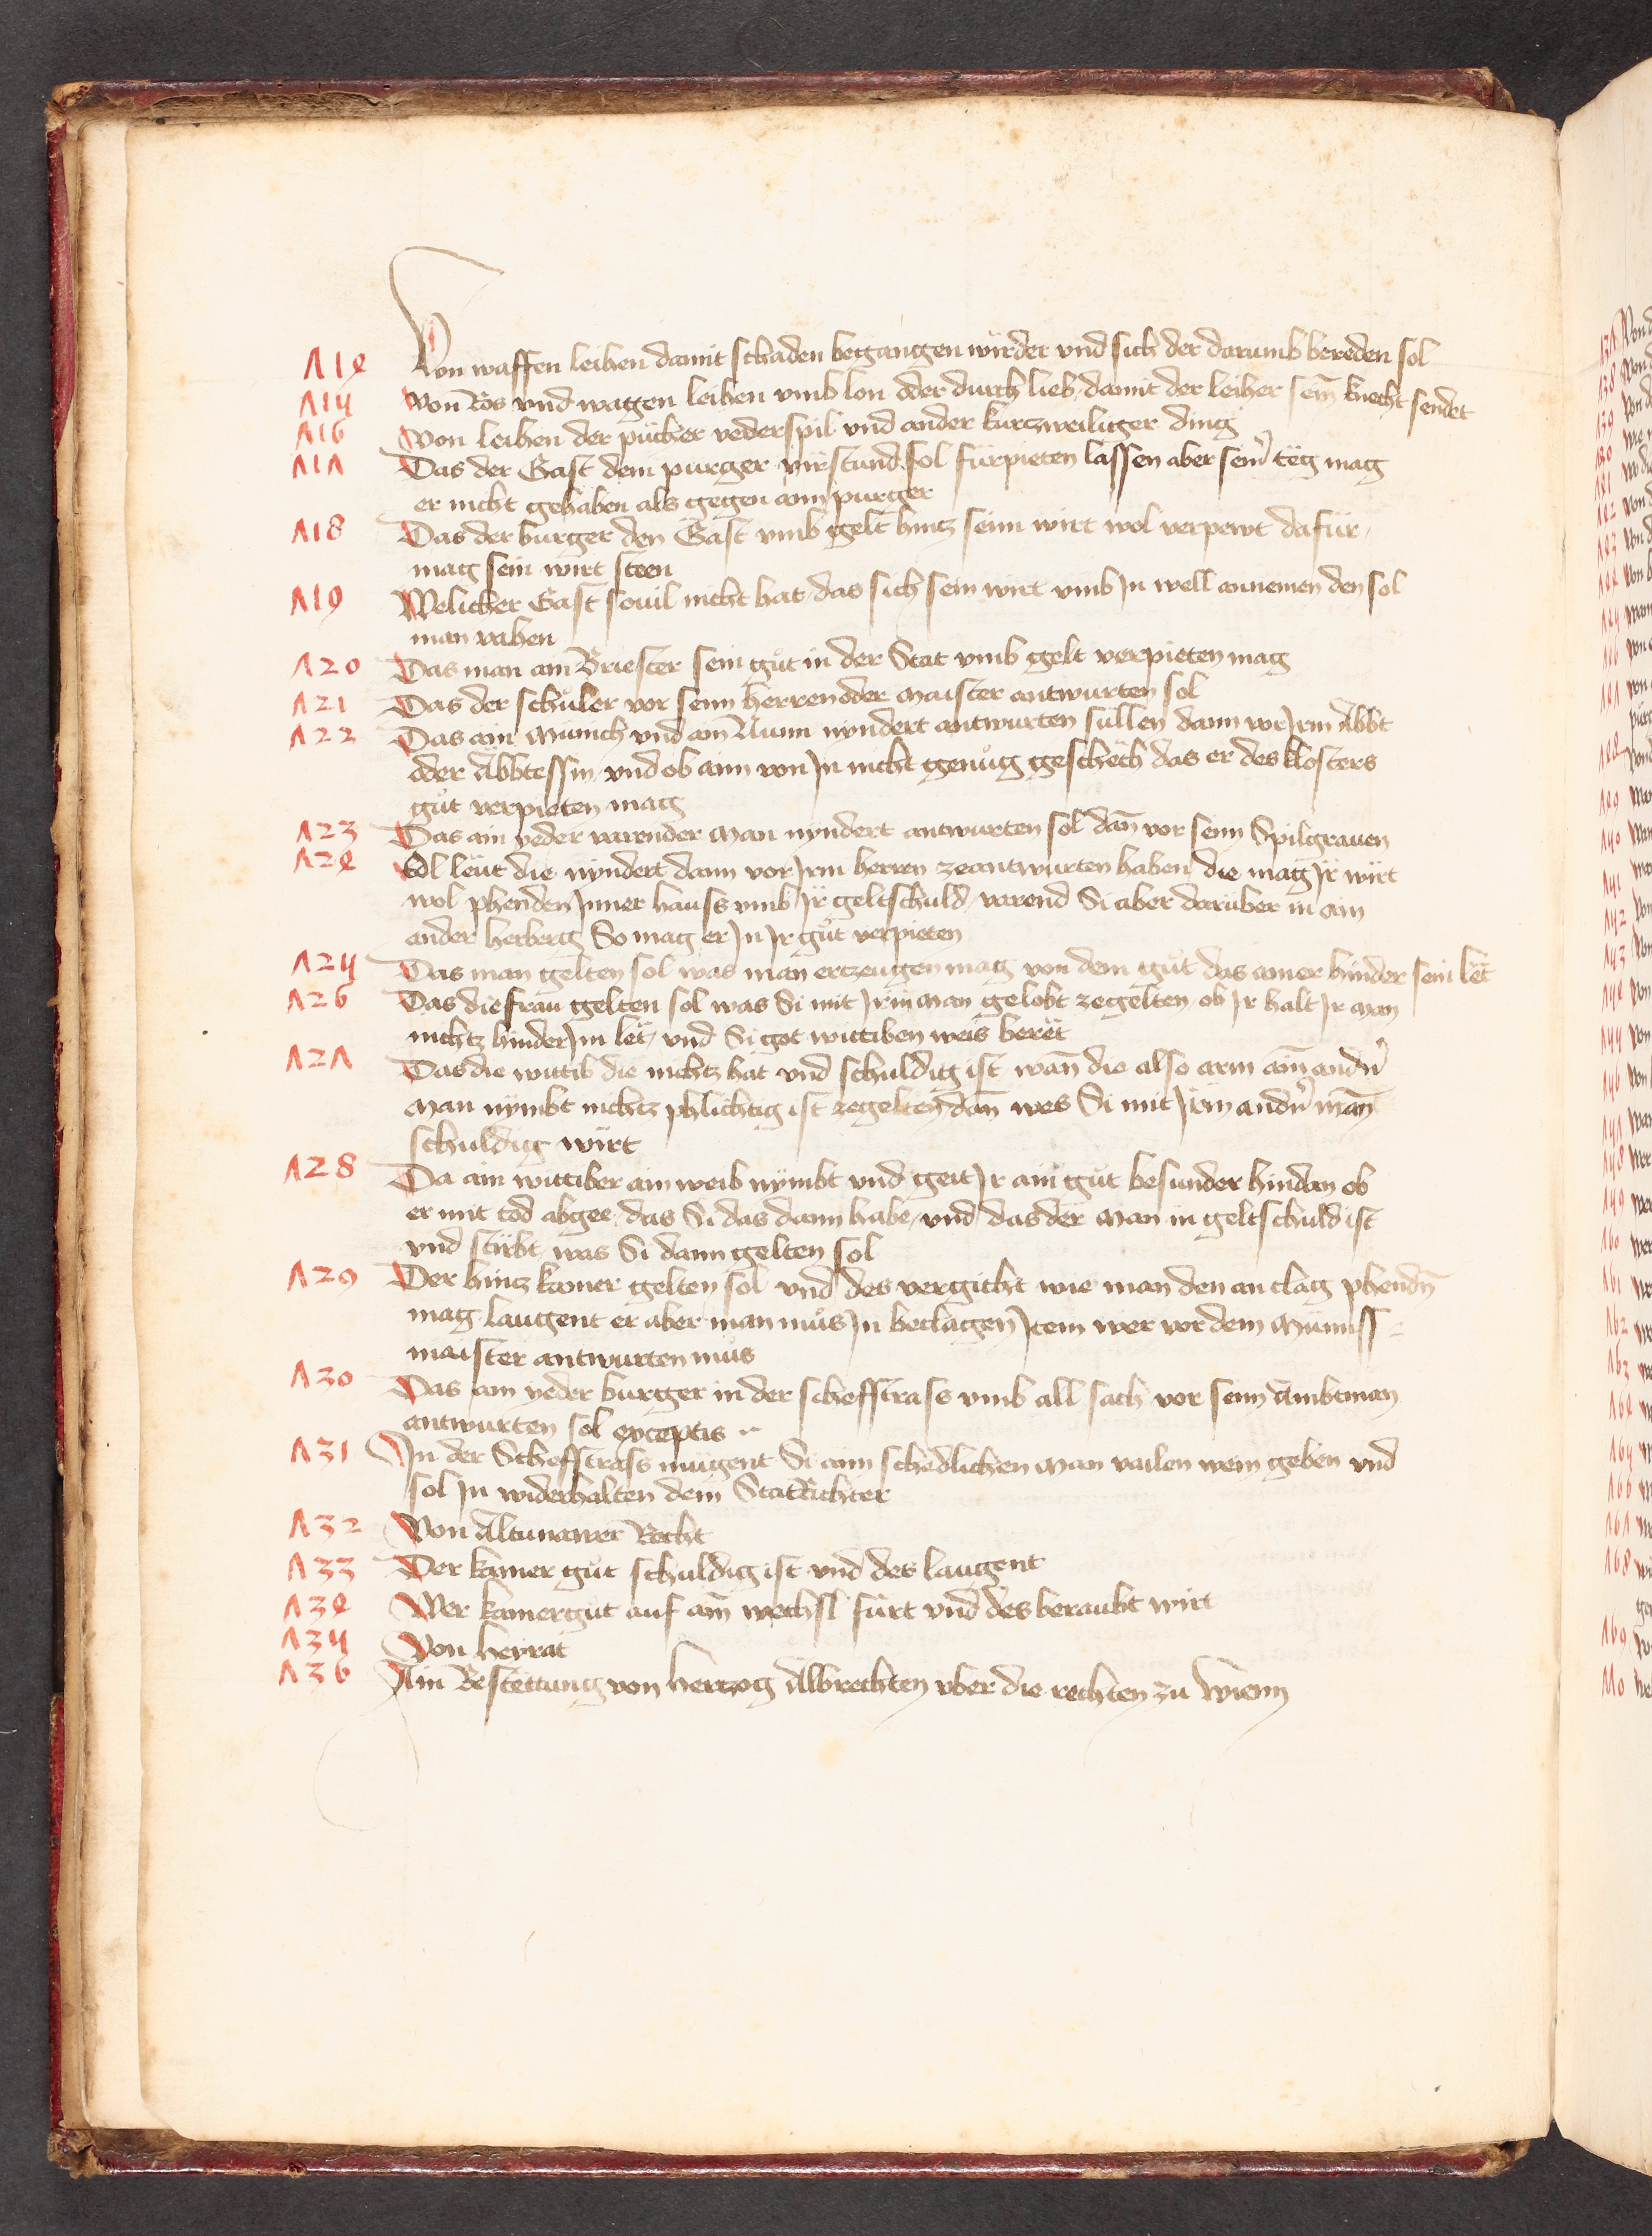 114 Von waffen leihen damit schaden begangen wirdet vnd sich der darumb bereden sol
115 Von Ros vnd wagen leihen vmb lon oder durch lieb damit der leiher sein knecht sendet
116 Von leihen der pücher vederspil vnd ander kurczweiliger ding
117 Das der Gast dem purger virstund sol fürpieten lassen aber seinr teg mag
er nicht gehaben als gegen aim purger
118 Das der burger den Gast vmb gelt hincz seim wirt wol verpewt dafür
mag sein wirt steen
119 Welicher Gast souil nicht hat das sich sein wirt vmb Jn well annemen den sol
man vahen
120 Das man aim Briester sein gůt in der Stat vmb gelt verpieten mag
121 Das der schůler vor seim herren oder maister antwurten sol
122 Das ain Münich vnd ain Nunn nyndert antwurten süllen dann vor Jrm Abbt
oder Abbtessin vnd ob aim von Jn nicht genůg geschech das er des klosters
gůt verpieten mag
123 Das ain yeder varender man nyndert antwurten sol dan̄ vor seim Spilgrauen
124 Edl leut die nyndert dann vor Jrm herren zeantwurten haben die mag Jr wirt
wol phenden Jnner hauss vmb Jr geltschuld varend Si aber darüber in ain
ander herberg So mag er Jn Jr gůt verpieten
125 Das man gelten sol was man erczeugen mag von dem gůt das ainer hinder sein let
126 Das die frau gelten sol was Si mit Jrm man gelobt zegelten ob Jr halt Jr man
nichtz hinder Jm let vnd Si got wittiben weis beret
127 Das die wittib die nichtz hat vnd schuldig ist wan̄ die also arm ain̄ andn̄
man nymbt nichtz phlichtig ist zegelten dan̄ wes Si mit Jrm andn̄ man̄
schuldig wirt
128 Da ain wittiber ain weib nymbt vnd geit Jr ain gůt besunder hindan ob
er mit tod abgee das Si das dann habe vnd das der man in geltschuld ist
vnd stirbt was Si dann gelten sol
129 Der hincz kamer gelten sol vnd des vergicht wie man den an clag phendn̄
mag laugent er aber man můs Jn beclagen Jtem wer vor dem Münss-
maister antwurten můs
130 Das ain yeder burger in der scheffstrass vmb all sach vor seim Ambtman
antwurten sol exceptis
131 Jn der Scheffstrass mügent Si aim schedlichen man vailen wein geben vnd
sol Jn widerhalten dem StatRichter
132 Von Altunawer Recht
133 Der kamer gůt schuldig ist vnd des laugent
134 Wer kamergut auf ain̄ wechsl fürt vnd des beraubt wirt
135 Von heyrat
136 Ain Bestettung von herczog Albrechten vber die rechten zu Wienn